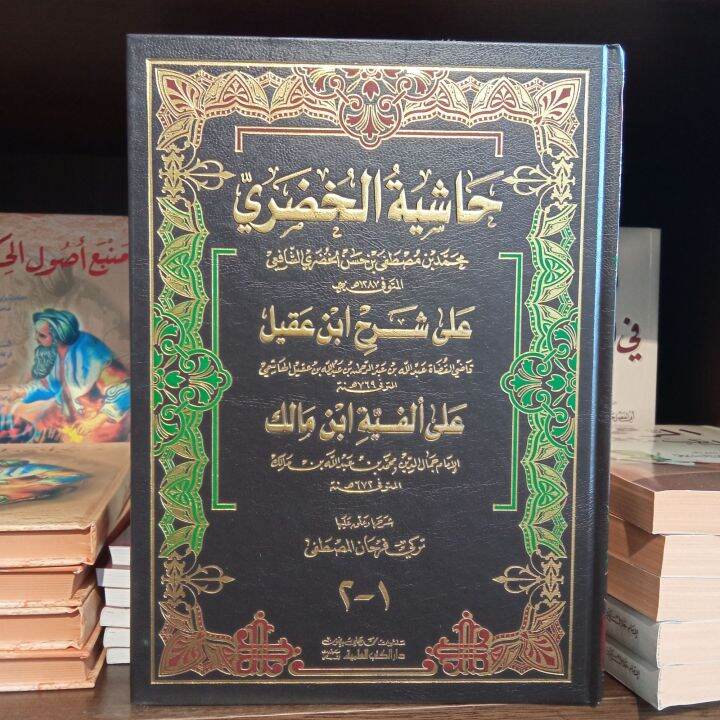 حَاشِيَةُ الخُضَرِيّ
محمد بن مصطفى بن حسن الخضري الشافعي
المتوفى ١٢٨٧ هـ
عَلى شَرح ابن عَقيل
قاضي القضاة عبد الله بن عبد الرحمن بن عبد الله بن عقيل الهاشمي
المتوفى ٧٦٩ هـ
عَلى ألفيَّة ابن مَالك
الإمام جمال الدين محمد بن عبد الله بن مالك
المتوفى ٦٧٢ هـ
شرحها وعلق عليها
تركي فرحان المصطفى
١-٢
دار الكتب العلمية
منبع أصول الح
في